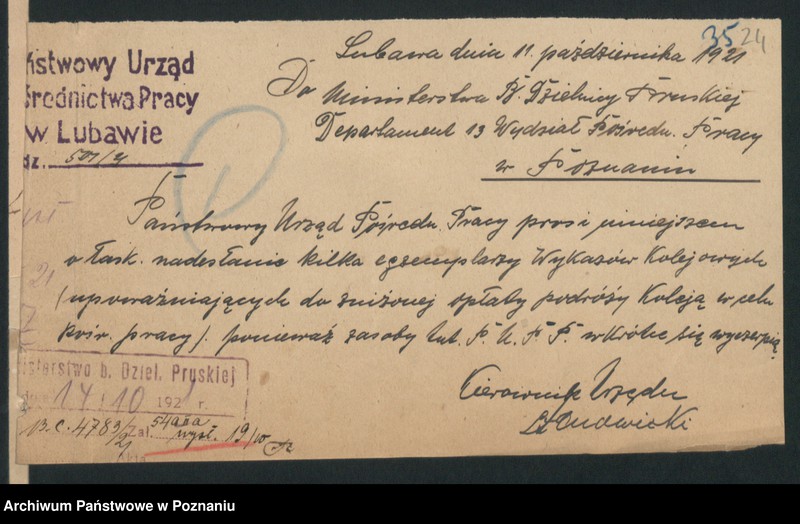 35 24
ństwowy Urząd
średnictwa Pracy
w Lubawie
dz. 501/21
Lubawa dnia 11. października 1921
Do Ministerstwa B. Dzielnicy Pruskiej
Departament 13 Wydział Pośredn. Pracy
w Poznaniu
Państwowy Urząd Pośredn. Pracy prosi niniejszem
o łask. nadesłanie kilka egzemplarzy Wykazów Kolejowych
/upoważniających do zniżonej opłaty podróży Koleją w celu
pośr. pracy/. ponieważ zasoby tut. P. U. P. P. wkrótce się wyczerpią
Kierownik Urzędu
Ludwicki
isterstwo b. Dziel. Pruskiej
14 10 1921 r.
B.C. 4783/21 zał.
wysł. 19/10
Archiwum Państwowe w Poznaniu